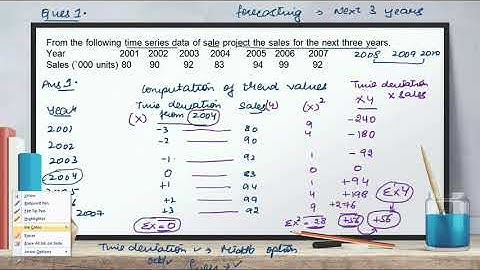 Ques 1.
forecasting → Next 3 years
From the following time series data of sale project the sales for the next three years.
Year 2001 2002 2003 2004 2005 2006 2007
2008 2009 2010
Sales (`000 units) 80 90 92 83 94 99 92
Ans 1.
Computation of trend values
Year
(X) Time deviation from 2004
Sales (Y)
(X)²
Time deviation x sales
XY
2001 -3 80 9 -240
2002 -2 90 4 -180
2003 -1 92 1 -92
2004 0 83 0 0
+1 94 1 +94
+2 99 4 +198
2007 +3 92 9 +276
ΣXY
ΣX=0
ΣX²=28
+56
+56
Time deviation
Middle option
odd